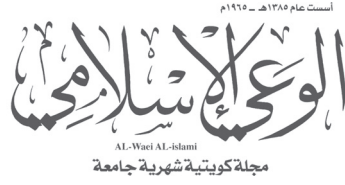 أسست عام ١٣٨٥هـ ـ ١٩٦٥م
الوعي الإسلامي
AL-Waei AL-islami
مجلة كويتية شهرية جامعة